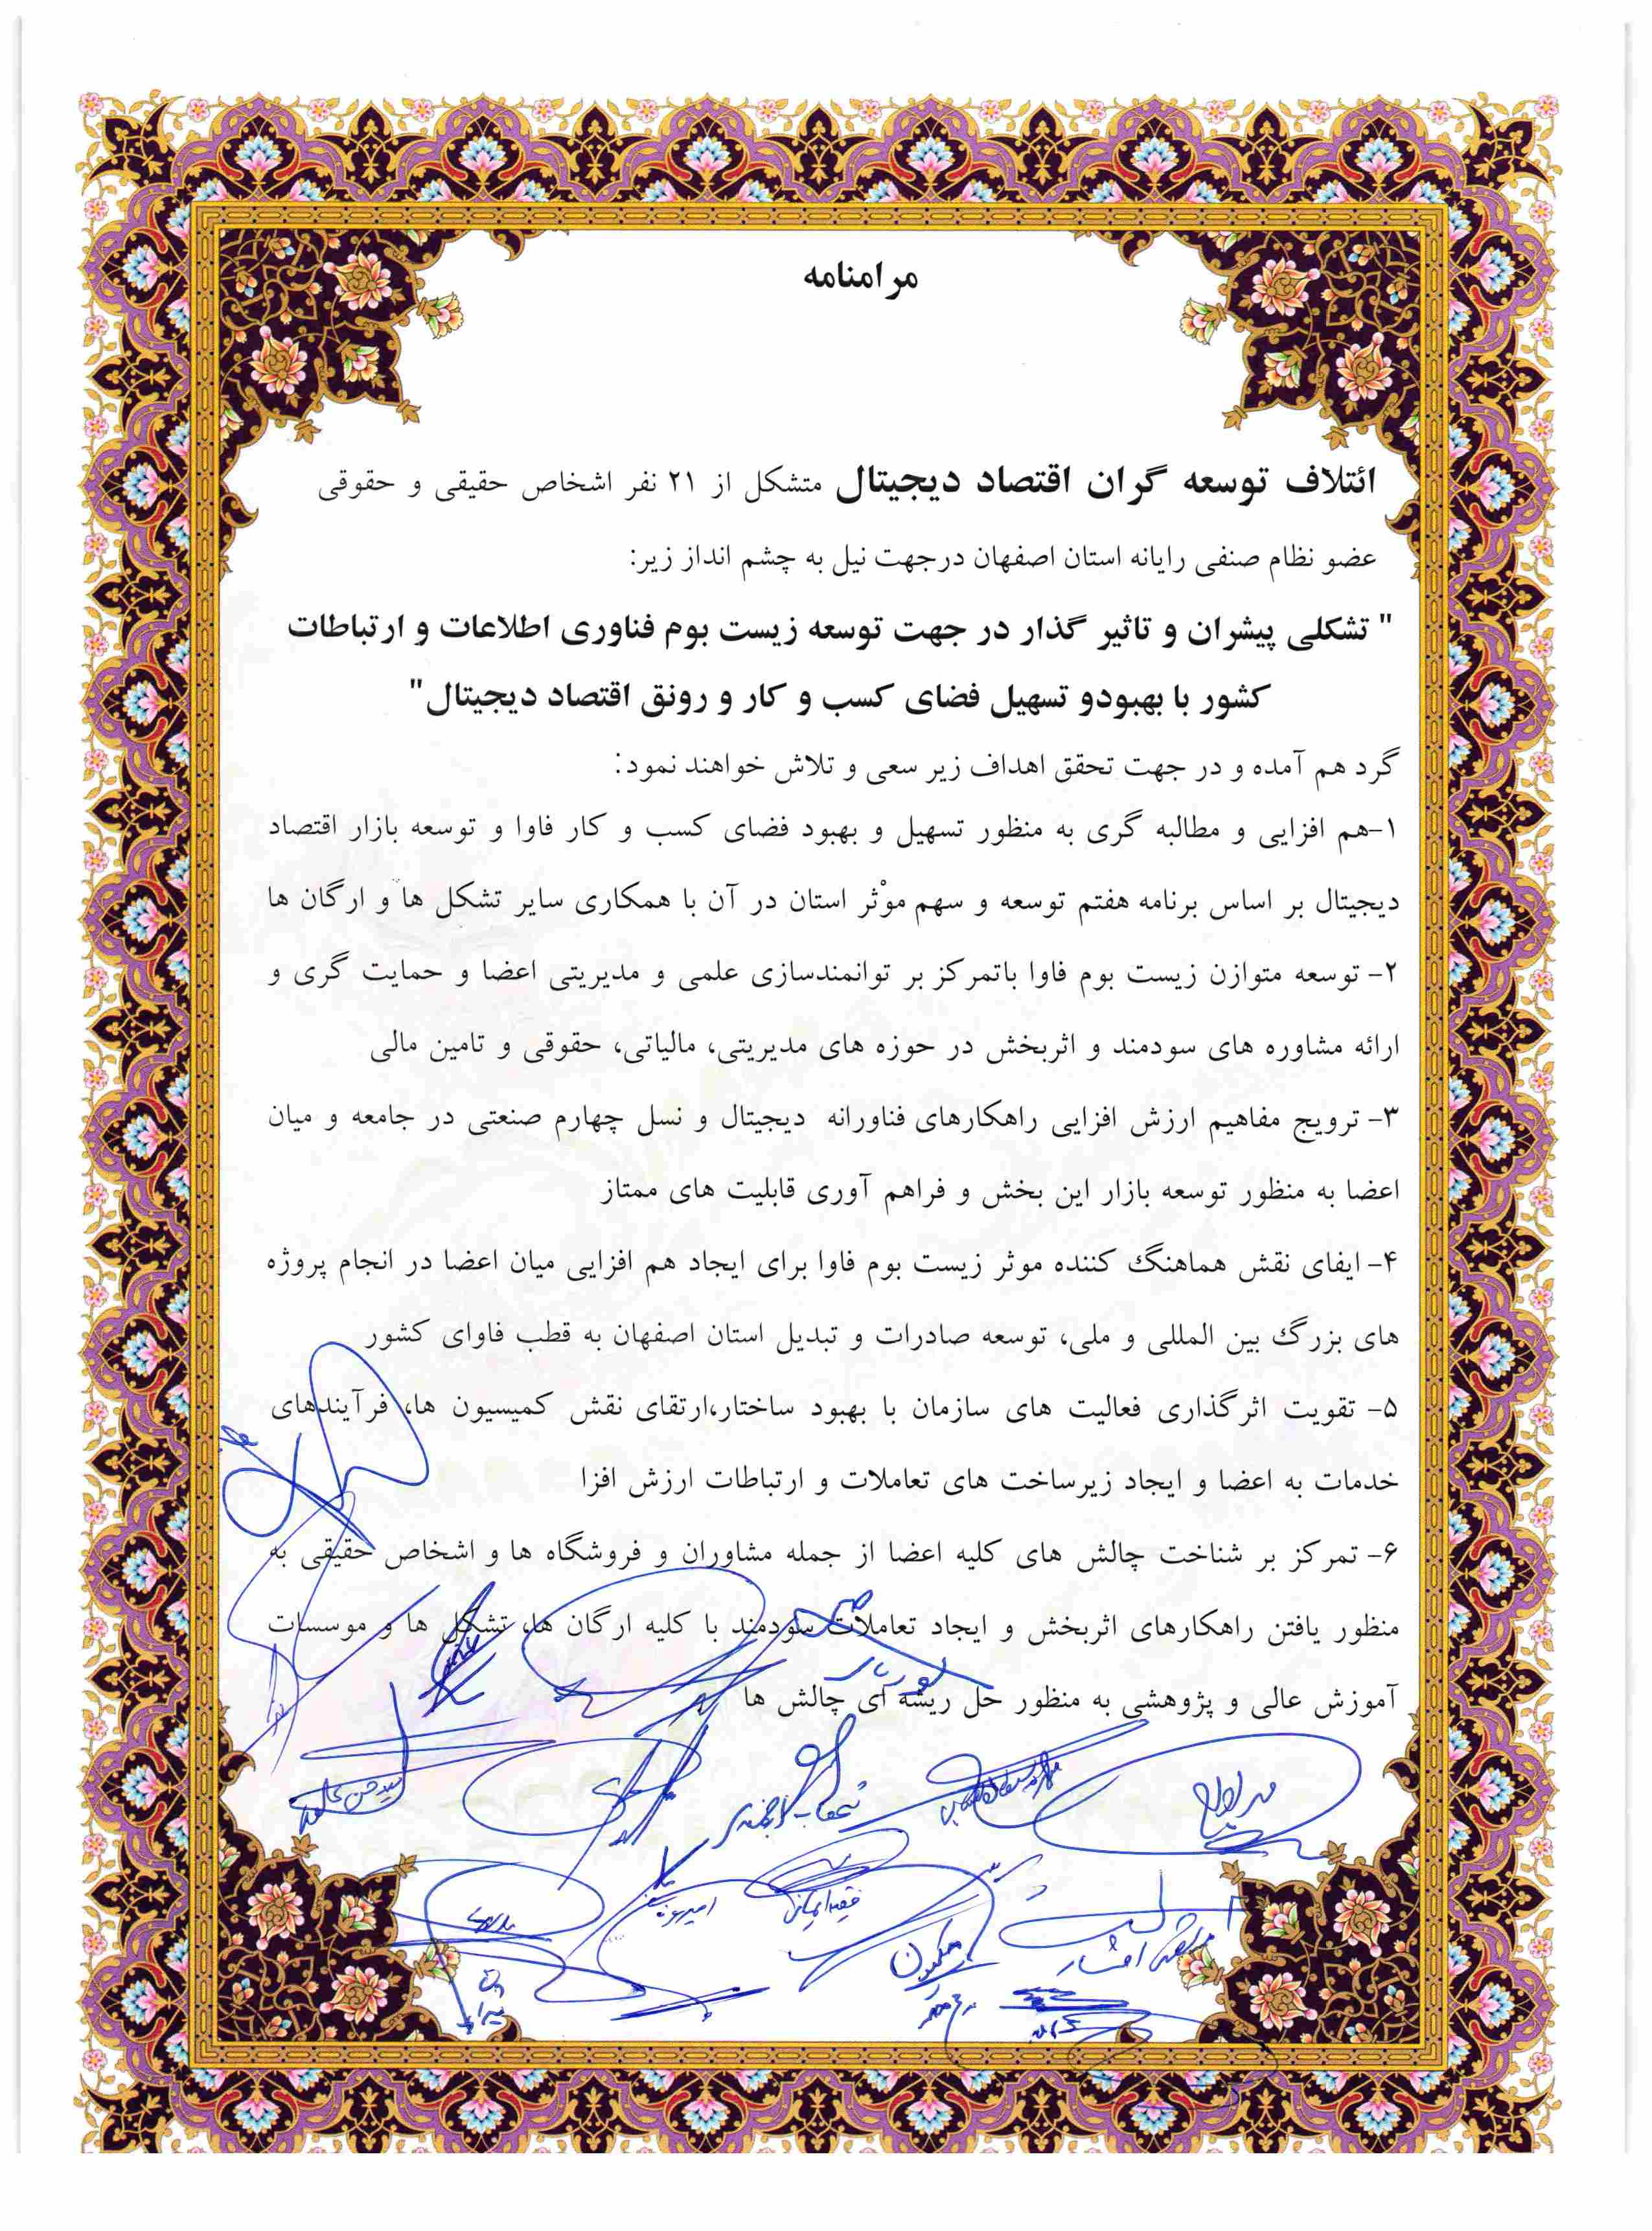 مرامنامه
ائتلاف توسعه گران اقتصاد دیجیتال متشکل از ۲۱ نفر اشخاص حقیقی و حقوقی
عضو نظام صنفی رایانه استان اصفهان درجهت نیل به چشم انداز زیر:
" تشکلی پیشران و تاثیر گذار در جهت توسعه زیست بوم فناوری اطلاعات و ارتباطات
کشور با بهبودو تسهیل فضای کسب و کار و رونق اقتصاد دیجیتال"
گرد هم آمده و در جهت تحقق اهداف زیر سعی و تلاش خواهند نمود:
۱-هم افزایی و مطالبه گری به منظور تسهیل و بهبود فضای کسب و کار فاوا و توسعه بازار اقتصاد
دیجیتال بر اساس برنامه هفتم توسعه و سهم موْثر استان در آن با همکاری سایر تشکل ها و ارگان ها
۲- توسعه متوازن زیست بوم فاوا باتمرکز بر توانمندسازی علمی و مدیریتی اعضا و حمایت گری و
ارائه مشاوره های سودمند و اثربخش در حوزه های مدیریتی، مالیاتی، حقوقی و تامین مالی
۳- ترویج مفاهیم ارزش افزایی راهکارهای فناورانه دیجیتال و نسل چهارم صنعتی در جامعه و میان
اعضا به منظور توسعه بازار این بخش و فراهم آوری قابلیت های ممتاز
۴- ایفای نقش هماهنگ کننده موثر زیست بوم فاوا برای ایجاد هم افزایی میان اعضا در انجام پروژه
های بزرگ بین المللی و ملی، توسعه صادرات و تبدیل استان اصفهان به قطب فاوای کشور
۵- تقویت اثرگذاری فعالیت های سازمان با بهبود ساختار،ارتقای نقش کمیسیون ها، فرآیندهای
خدمات به اعضا و ایجاد زیرساخت های تعاملات و ارتباطات ارزش افزا
۶- تمرکز بر شناخت چالش های کلیه اعضا از جمله مشاوران و فروشگاه ها و اشخاص حقیقی به
منظور یافتن راهکارهای اثربخش و ایجاد تعاملات سودمند با کلیه ارگان ها، تشکل ها و موسسات
آموزش عالی و پژوهشی به منظور حل ریشه ای چالش ها